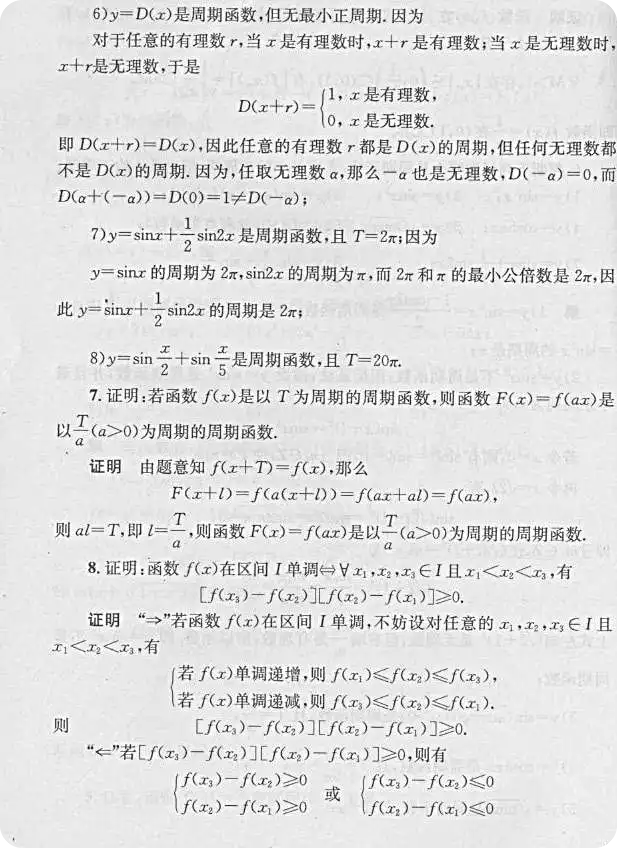 6)y=D(x)是周期函数,但无最小正周期.因为
对于任意的有理数r,当x是有理数时,x+r是有理数;当x是无理数时,
x+r是无理数,于是
D(x+r)={1, x是有理数,
0, x是无理数.
即D(x+r)=D(x),因此任意的有理数r都是D(x)的周期,但任何无理数都
不是D(x)的周期.因为,任取无理数α,那么-α也是无理数,D(-α)=0,而
D(α+(-α))=D(0)=1≠D(-α);
7)y=sinx+1/2sin2x是周期函数,且T=2π;因为
y=sinx的周期为2π,sin2x的周期为π,而2π和π的最小公倍数是2π,因
此y=sinx+1/2sin2x的周期是2π;
8)y=sin x/2+sin x/5是周期函数,且T=20π.
7.证明:若函数f(x)是以T为周期的周期函数,则函数F(x)=f(ax)是
以T/a(a>0)为周期的周期函数.
证明 由题意知f(x+T)=f(x),那么
F(x+l)=f(a(x+l))=f(ax+al)=f(ax),
则al=T,即l=T/a,则函数F(x)=f(ax)是以T/a(a>0)为周期的周期函数.
8.证明:函数f(x)在区间I单调⇔∀x₁,x₂,x₃∈I且x₁<x₂<x₃,有
[f(x₃)-f(x₂)][f(x₂)-f(x₁)]≥0.
证明 “⇒”若函数f(x)在区间I单调,不妨设对任意的x₁,x₂,x₃∈I且
x₁<x₂<x₃,有
{若f(x)单调递增,则f(x₁)≤f(x₂)≤f(x₃),
若f(x)单调递减,则f(x₃)≤f(x₂)≤f(x₁).
则 [f(x₃)-f(x₂)][f(x₂)-f(x₁)]≥0.
“⇐”若[f(x₃)-f(x₂)][f(x₂)-f(x₁)]≥0,则有
{f(x₃)-f(x₂)≥0 或 {f(x₃)-f(x₂)≤0
f(x₂)-f(x₁)≥0 f(x₂)-f(x₁)≤0